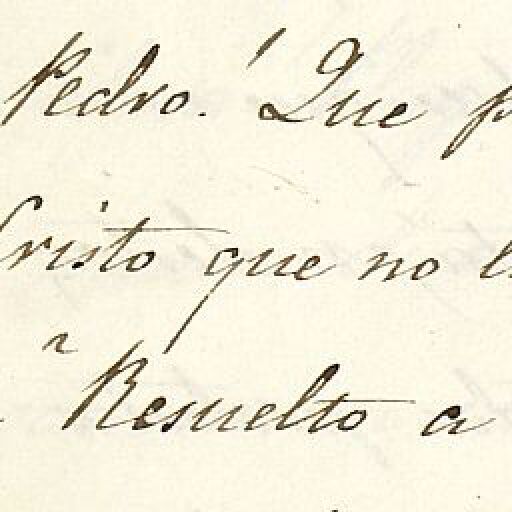 Pedro. Que
Cristo que no
Resuelto a